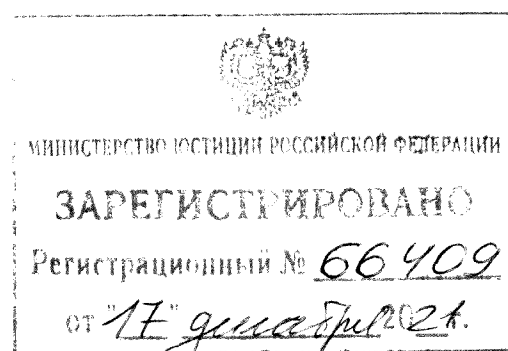 МИНИСТЕРСТВО ЮСТИЦИИ РОССИЙСКОЙ ФЕДЕРАЦИИ
ЗАРЕГИСТРИРОВАНО
Регистрационный № 66409
от "17" декабря 2021г.